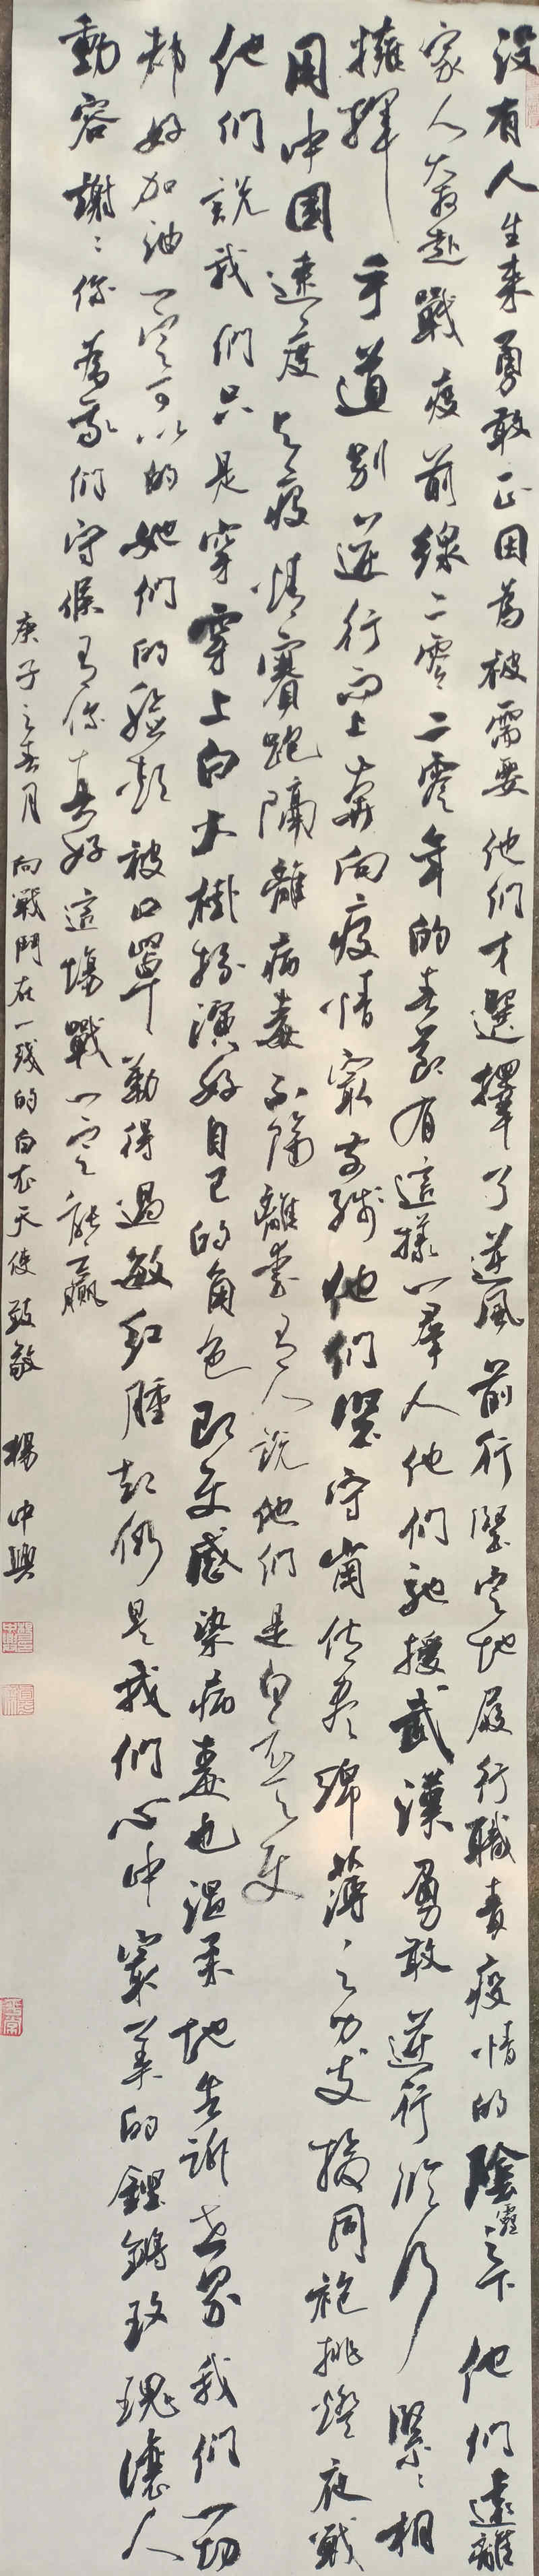 没有人生来勇敢正因为被需要他们才選擇了逆風前行堅定地履行職責疫情的陰霾之下他們遠離
家人奔赴戰疫前線二零二零年的春節有這樣一羣人他们馳援武漢勇敢逆行臨行緊緊相
擁揮手道别逆行而上奔向疫情最前綫他们堅守崗位尽綿薄之力支援同袍挑燈夜戰
用中國速度与疫情賽跑隔離病毒不隔離愛有人說他们是白衣天使
他們説我們只是穿穿上白大褂扮演好自己的角色即使感染病毒也温柔地告訴世界我们一切
都好加油一定可以的她們的臉龐被口罩勒得過敏紅腫却仍是我們心中最美的鏗鏘玫瑰讓人
動容謝謝你為我们守候有你真好這場戰一定能贏
庚子之春月 向戰鬥在一线的白衣天使致敬 楊中興